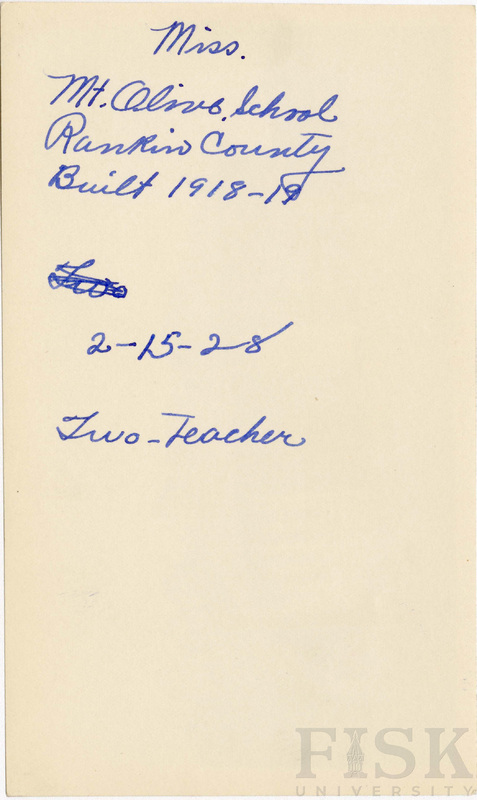 Miss.
Mt. Olive School
Rankin County
Built 1918-19
Two
2-15-28
Two-Teacher
FISK
UNIVERSITY